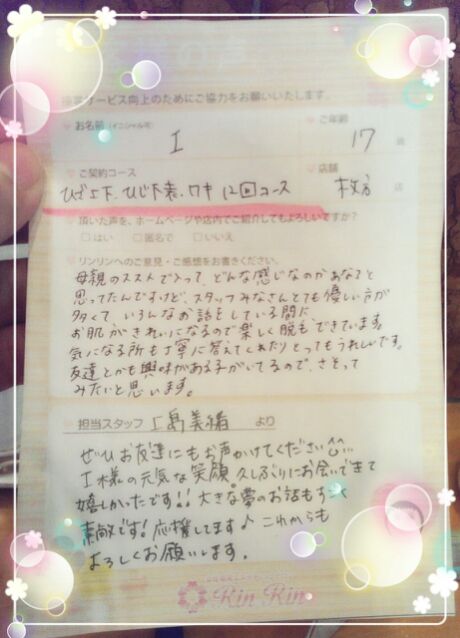 の声
サービス向上のためにご協力をお願いいたします。
お名前(イニシャル可) I
ご年齢 17 歳
ご契約コース
ひざ上下、ひじ下表、ワキ 12回コース
店舗 枚方 店
頂いた声を、ホームページや店内でご紹介してもよろしいですか?
□はい □匿名で □いいえ
リンリンへのご意見・ご感想をお書きください。
母親のススメで入って、どんな感じなのかなぁと
思ってたんですけど、スタッフみなさんとても優しい方が
多くて、いろんなお話をしている間に
お肌がきれいになるので楽しく脱毛できています。
気になる所も丁寧に答えてくれたりとってもうれしいです。
友達とかも興味がある子がいてるので、さそって
みたいと思います。
担当スタッフ 島美緒 より
ぜひお友達にもお声かけてください
I様の元気な笑顔。久しぶりにお会いできて
嬉しかったです!!大きな夢のお話もすごく
素敵です!応援してます♪これからも
よろしくお願いします。
Rin Rin